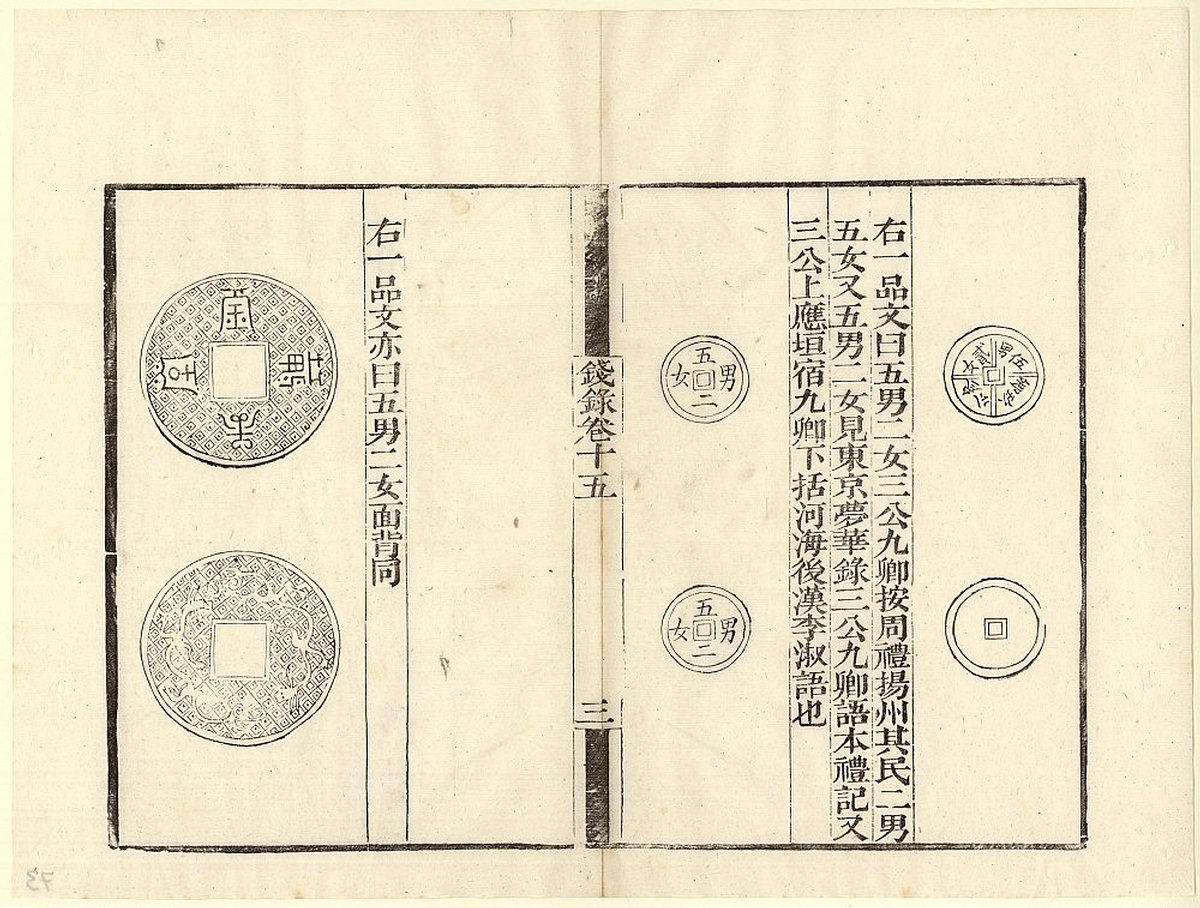 伍男
貳女
右一品文曰五男二女三公九卿按周禮揚州其民二男
五女又五男二女見東京夢華錄三公九卿語本禮記又
三公上應垣宿九卿下括河海後漢李淑語也
五男二女
五男二女
錢錄卷十五
三
右一品文亦曰五男二女面背同
73